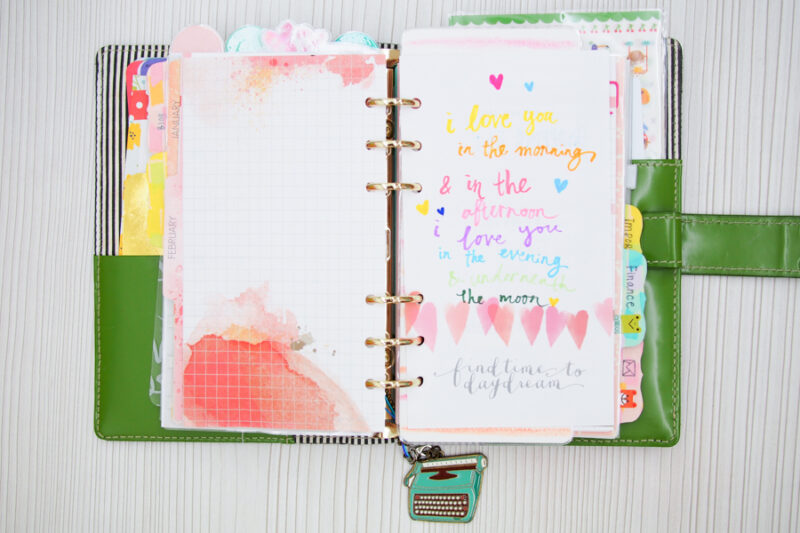 JANUARY
FEBRUARY
i love you
in the morning,
& in the
afternoon
i love you
in the evening
& underneath
the moon
find time to
daydream
Finance